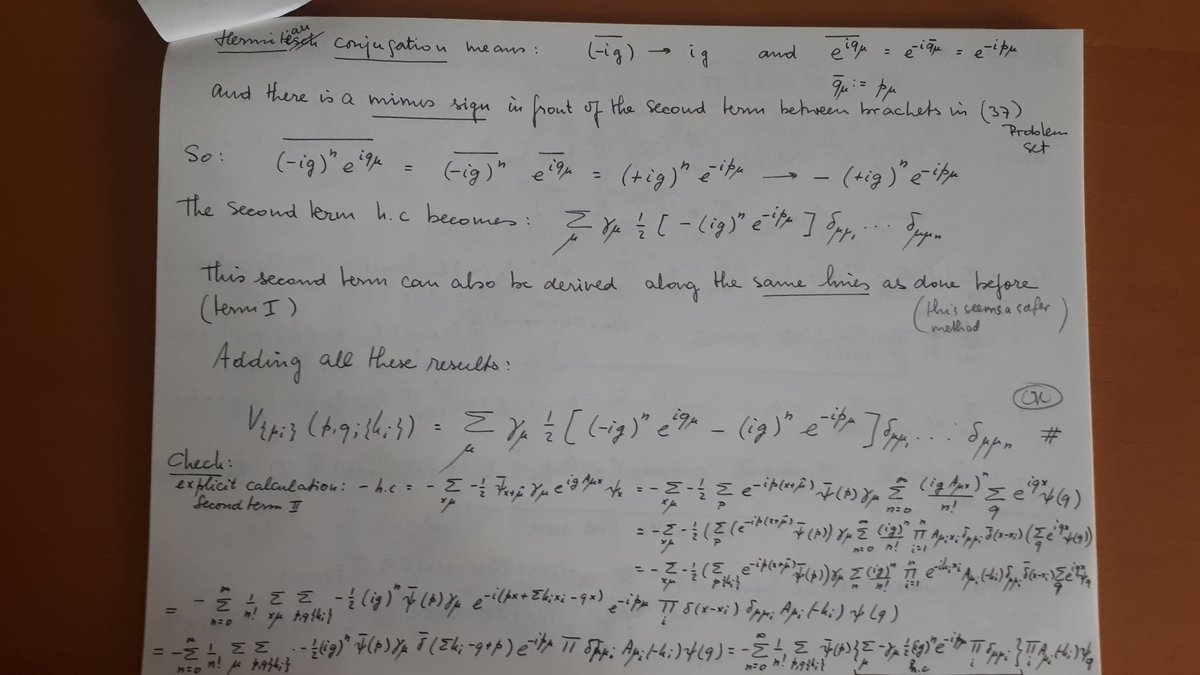 Hermitian conjugation means: $\overline{(-ig)} \to ig$ and $\overline{e^{iq_\mu}} = e^{-i\bar{q}_\mu} = e^{-ip_\mu}$
$\bar{q}_\mu := p_\mu$
And there is a minus sign in front of the second term between brackets in (37)
Problem set
So: $\overline{(-ig)^n e^{iq_\mu}} = \overline{(-ig)}^n \overline{e^{iq_\mu}} = (+ig)^n e^{-ip_\mu} \longrightarrow -(+ig)^n e^{-ip_\mu}$
The second term h.c becomes: $\sum_\mu \gamma_\mu \frac{1}{2} [ -(ig)^n e^{-ip_\mu} ] \delta_{\mu\mu_1} \cdots \delta_{\mu\mu_n}$
This second term can also be derived along the same lines as done before
(term I) (this seems a safer method)
Adding all these results:
$V_{\{\mu_i\}} (p,q;\{k_i\}) = \sum_\mu \gamma_\mu \frac{1}{2} [ (-ig)^n e^{iq_\mu} - (ig)^n e^{-ip_\mu} ] \delta_{\mu\mu_1} \cdots \delta_{\mu\mu_n}$ #
Check:
explicit calculation: $-h.c = -\sum_{x\mu} -\frac{1}{2} \bar{\psi}_{x+\hat{\mu}} \gamma_\mu e^{igA_{\mu x}} \psi_x = -\sum_{x\mu} -\frac{1}{2} \sum_p e^{-ip(x+\hat{\mu})} \bar{\psi}(p) \gamma_\mu \sum_{n=0}^\infty \frac{(igA_{\mu x})^n}{n!} \sum_q e^{iqx} \psi(q)$
second term II
$= -\sum_{x\mu} -\frac{1}{2} (\sum_p (e^{-ip(x+\hat{\mu})} \bar{\psi}(p)) \gamma_\mu \sum_{n=0}^\infty \frac{(ig)^n}{n!} \prod_{i=1}^n A_{\mu_i x_i} \delta_{\mu\mu_i} \bar{\delta}(x-x_i) (\sum_q e^{iqx} \psi(q))$
$= -\sum_{x\mu} -\frac{1}{2} (\sum_{p\{k_i\}} e^{-ip(x+\hat{\mu})} \bar{\psi}(p)) \gamma_\mu \sum_n \frac{(ig)^n}{n!} \prod_{i=1}^n e^{-ik_i x_i} A_{\mu_i}(-k_i) \delta_{\mu\mu_i} \bar{\delta}(x-x_i) \sum_q e^{iqx} \psi_q$
$= -\sum_{n=0}^\infty \frac{1}{n!} \sum_{x\mu} \sum_{p,q\{k_i\}} -\frac{1}{2} (ig)^n \bar{\psi}(p) \gamma_\mu e^{-i(px+\Sigma k_i x_i - qx)} e^{-ip_\mu} \prod_i \delta(x-x_i) \delta_{\mu\mu_i} A_{\mu_i}(-k_i) \psi(q)$
$= -\sum_{n=0}^\infty \frac{1}{n!} \sum_\mu \sum_{p,q\{k_i\}} -\frac{1}{2} (ig)^n \bar{\psi}(p) \gamma_\mu \bar{\delta}(\Sigma k_i - q + p) e^{-ip_\mu} \prod \delta_{\mu\mu_i} A_{\mu_i}(-k_i) \psi(q) = -\sum_{n=0}^\infty \frac{1}{n!} \sum_{p,q\{k_i\}} \bar{\psi}(p) \{ \sum_\mu -\gamma_\mu \frac{1}{2} (ig)^n e^{-ip_\mu} \prod_i \delta_{\mu\mu_i} \} \prod A_{\mu_i}(-k_i) \psi_q$
h.c